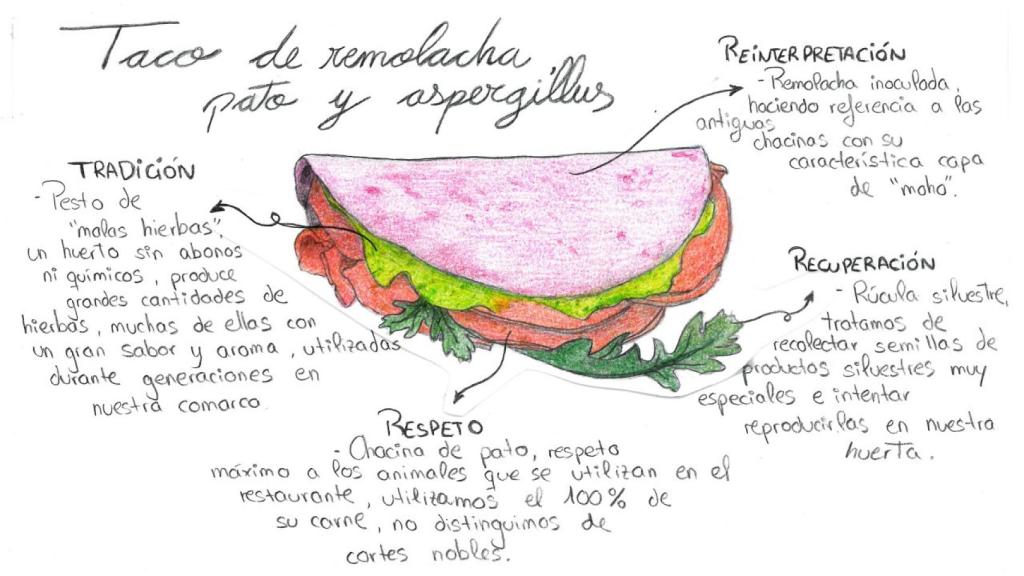 Taco de remolacha,
pato y aspergillus
REINTERPRETACIÓN
- Remolacha inoculada,
haciendo referencia a las
antiguas
chacinas con su
característica capa
de "moho".
TRADICIÓN
- Pesto de
"malas hierbas",
un huerto sin abonos
ni químicos, produce
grandes cantidades de
hierbas, muchas de ellas con
un gran sabor y aroma, utilizadas
durante generaciones en
nuestra comarca.
RECUPERACIÓN
- Rúcula silvestre,
tratamos de
recolectar semillas de
productos silvestres muy
especiales e intentar
reproducirlas en nuestra
huerta.
RESPETO
- Chacina de pato, respeto
máximo a los animales que se utilizan en el
restaurante, utilizamos el 100% de
su carne, no distinguimos de
cortes nobles.